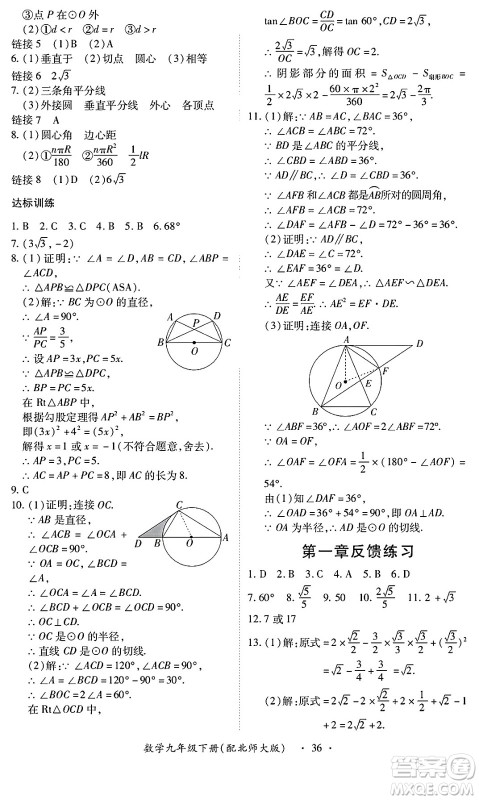 ③点 P 在⊙O 外
(2)①d<r ②d=r ③d>r
链接 5 (1)B (2)A
6.(1)垂直于 (2)切点 圆心 (3)相等
链接 6 2√3
7.(2)三条角平分线
(3)外接圆 垂直平分线 外心 各顶点
链接 7 A
8.(1)圆心角 边心距
(2)①nπR/180 ②nπR²/360 1/2 lR
链接 8 (1)D (2)A
达标训练
1. B 2. C 3. C 4. B 5. D 6.68°
7.(3√3,-2)
8.(1)证明:∵∠A=∠D,AB=CD,∠ABP=
∠ACD,
∴△ABP≌△DPC(ASA).
(2)解:∵BC为⊙O的直径,
∴∠A=90°.
∵AP/PC=3/5,
∴设 AP=3x,PC=5x.
∵△ABP≌△DPC,
∴BP=PC=5x.
在 Rt△ABP 中,
根据勾股定理得 AP²+AB²=BP²,
即(3x)²+4²=(5x)²,
解得 x=1 或 x=-1(不符合题意,舍去).
∴AP=3,PC=5.
∴AC=AP+PC=8,即 AC 的长为 8.
A P D B O C
9. C
10.(1)证明:连接 OC.
∵AB 是直径,
∴∠ACB=∠OCA+
∠OCB=90°.
∵OA=OC,∠BCD=
∠A,
∴∠OCA=∠A=∠BCD.
∴∠BCD+∠OCB=∠OCD=90°.
∴OC⊥CD.
∵OC 是⊙O 的半径,
∴直线 CD 是⊙O 的切线.
(2)解:∵∠ACD=120°,∠ACB=90°,
∴∠A=∠BCD=120°-90°=30°.
∴∠BOC=2∠A=60°.
在 Rt△OCD 中,
C D B O A
tan∠BOC=CD/OC=tan 60°,CD=2√3,
∴2√3/OC=√3,解得 OC=2.
∴阴影部分的面积=S△OCD-S扇形BOC=
1/2×2√3×2-60×π×2²/360=2√3-2π/3.
11.(1)证明:∵AB=AC,∠BAC=36°,
∴∠ACB=∠ABC=72°.
∵BD 是∠ABC 的平分线,
∴∠ABD=∠DBC=36°.
∵AD∥BC,∴∠D=∠DBC=36°.
∵∠AFB 与∠ACB 都是AB所对的圆周角,
∴∠AFB=∠ACB=72°.
∴∠DAF=∠AFB-∠D=72°-36°=36°.
(2)证明:∵AD∥BC,
∴∠DAE=∠ACB=72°.
∴∠DAE=∠AFE=72°.
又∵∠AEF=∠DEA,∴△AEF∽△DEA.
∴AE/DE=EF/AE.∴AE²=EF·DE.
(3)证明:连接 OA,OF.
A D O E F B C
∵∠ABF=36°,∴∠AOF=2∠ABF=72°.
∵OA=OF,
∴∠OAF=∠OFA=1/2×(180°-∠AOF)=
54°.
由(1)知∠DAF=36°,
∴∠OAD=36°+54°=90°,即 OA⊥AD.
∵OA 为半径,∴AD 是⊙O 的切线.
第一章反馈练习
1. D 2. A 3. D 4. B 5. B 6. D
7.60° 8.√5/5 9.50 10.2√5/5 11.2+√3
12.7 或 17
13.(1)解:原式=2×√2/2-3/2×√3/3×√3/2+(√3/2)²
=√2-3/4+3/4=√2.
(2)解:原式=2√2-√2/2×√2-2×√2/2+1/2
×2=2√2-1-√2+1
=√2.
数学九年级下册(配北师大版) · 36 ·